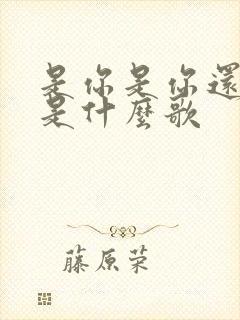 是你是你還
是什麼歌
藤原荣